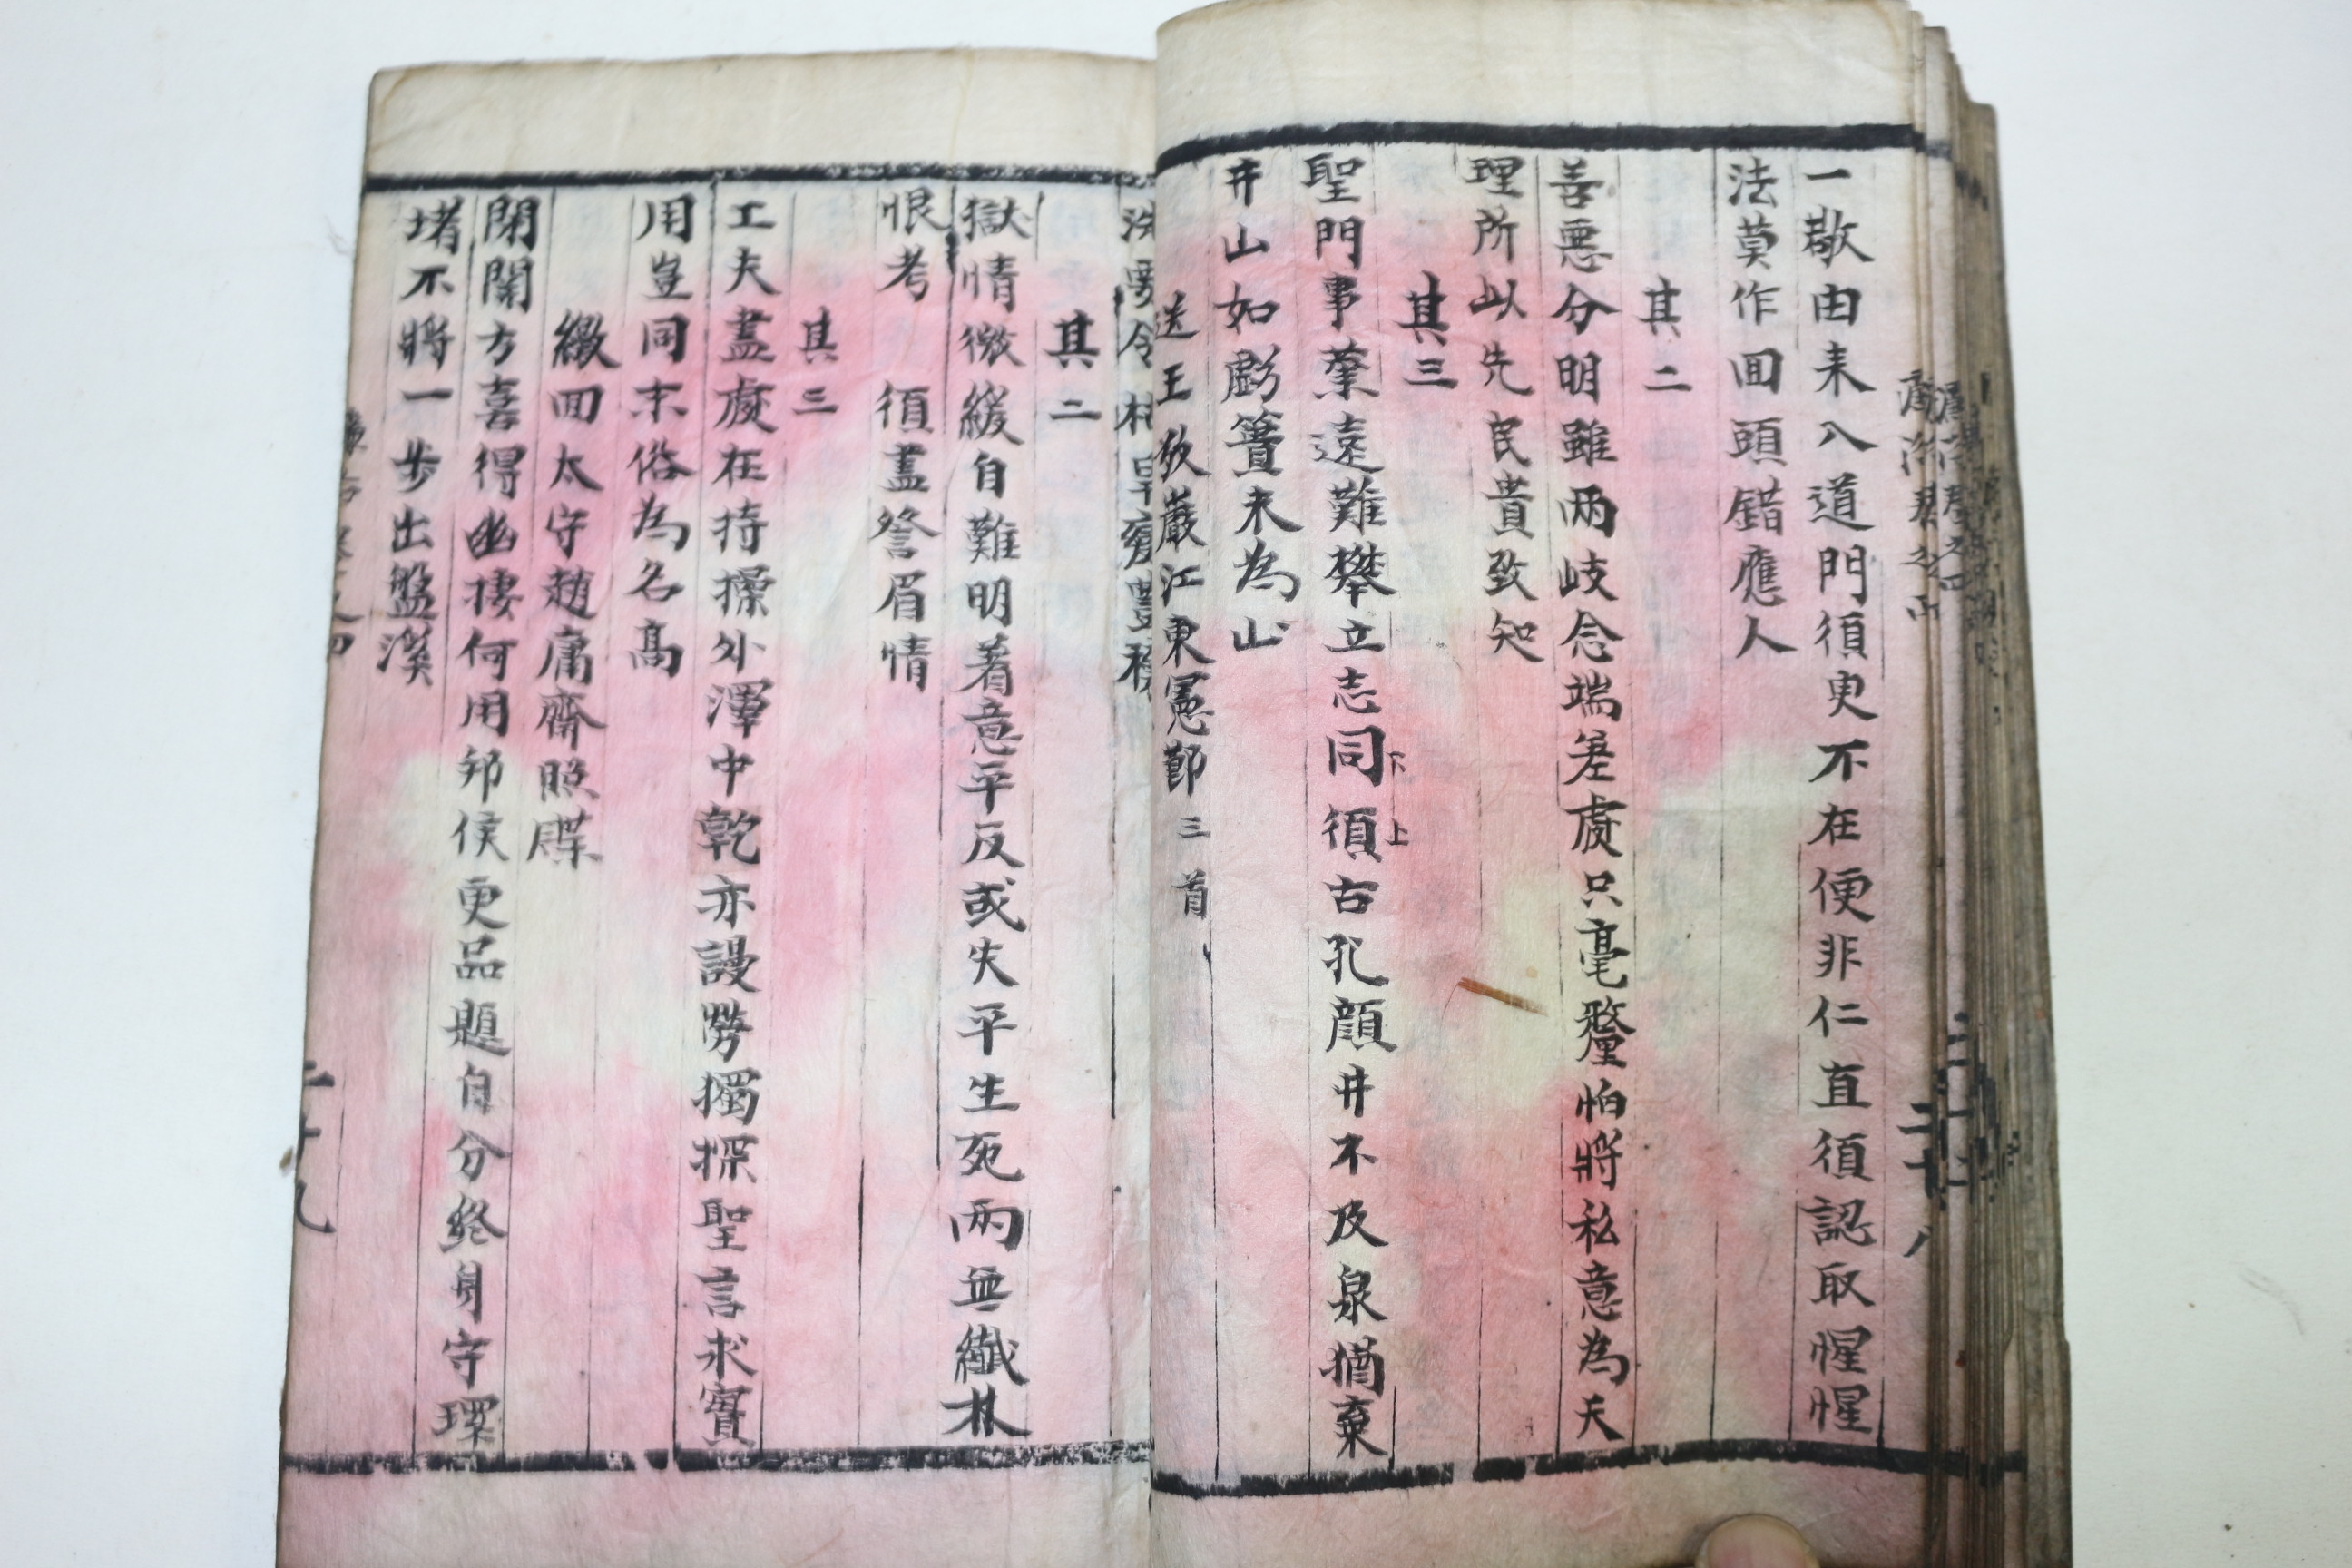 一敬由来入道門須更不在便非仁直須認取惺惺
法莫作回頭錯應人
其二
善惡分明雖兩岐念端差處只毫釐怕將私意為天
理所以先民貴致知
其三
聖門事業遠難攀立志同須古孔顔井不及泉猶棄
下上
井山如虧簣未為山
送王敬巖江東憲節三首
其二
獄情微緩自難明着意平反或失平生死兩無纖
恨考須盡眉情
其三
工夫盡處在持操外澤中乾亦謾勞獨探聖言求實
用豈同末俗為名高
繳回太守趙庸齋照牒
閉關方喜得幽棲何用邦侯更品題自分終身守環
堵不將一步出盤溪
二十八
二十九